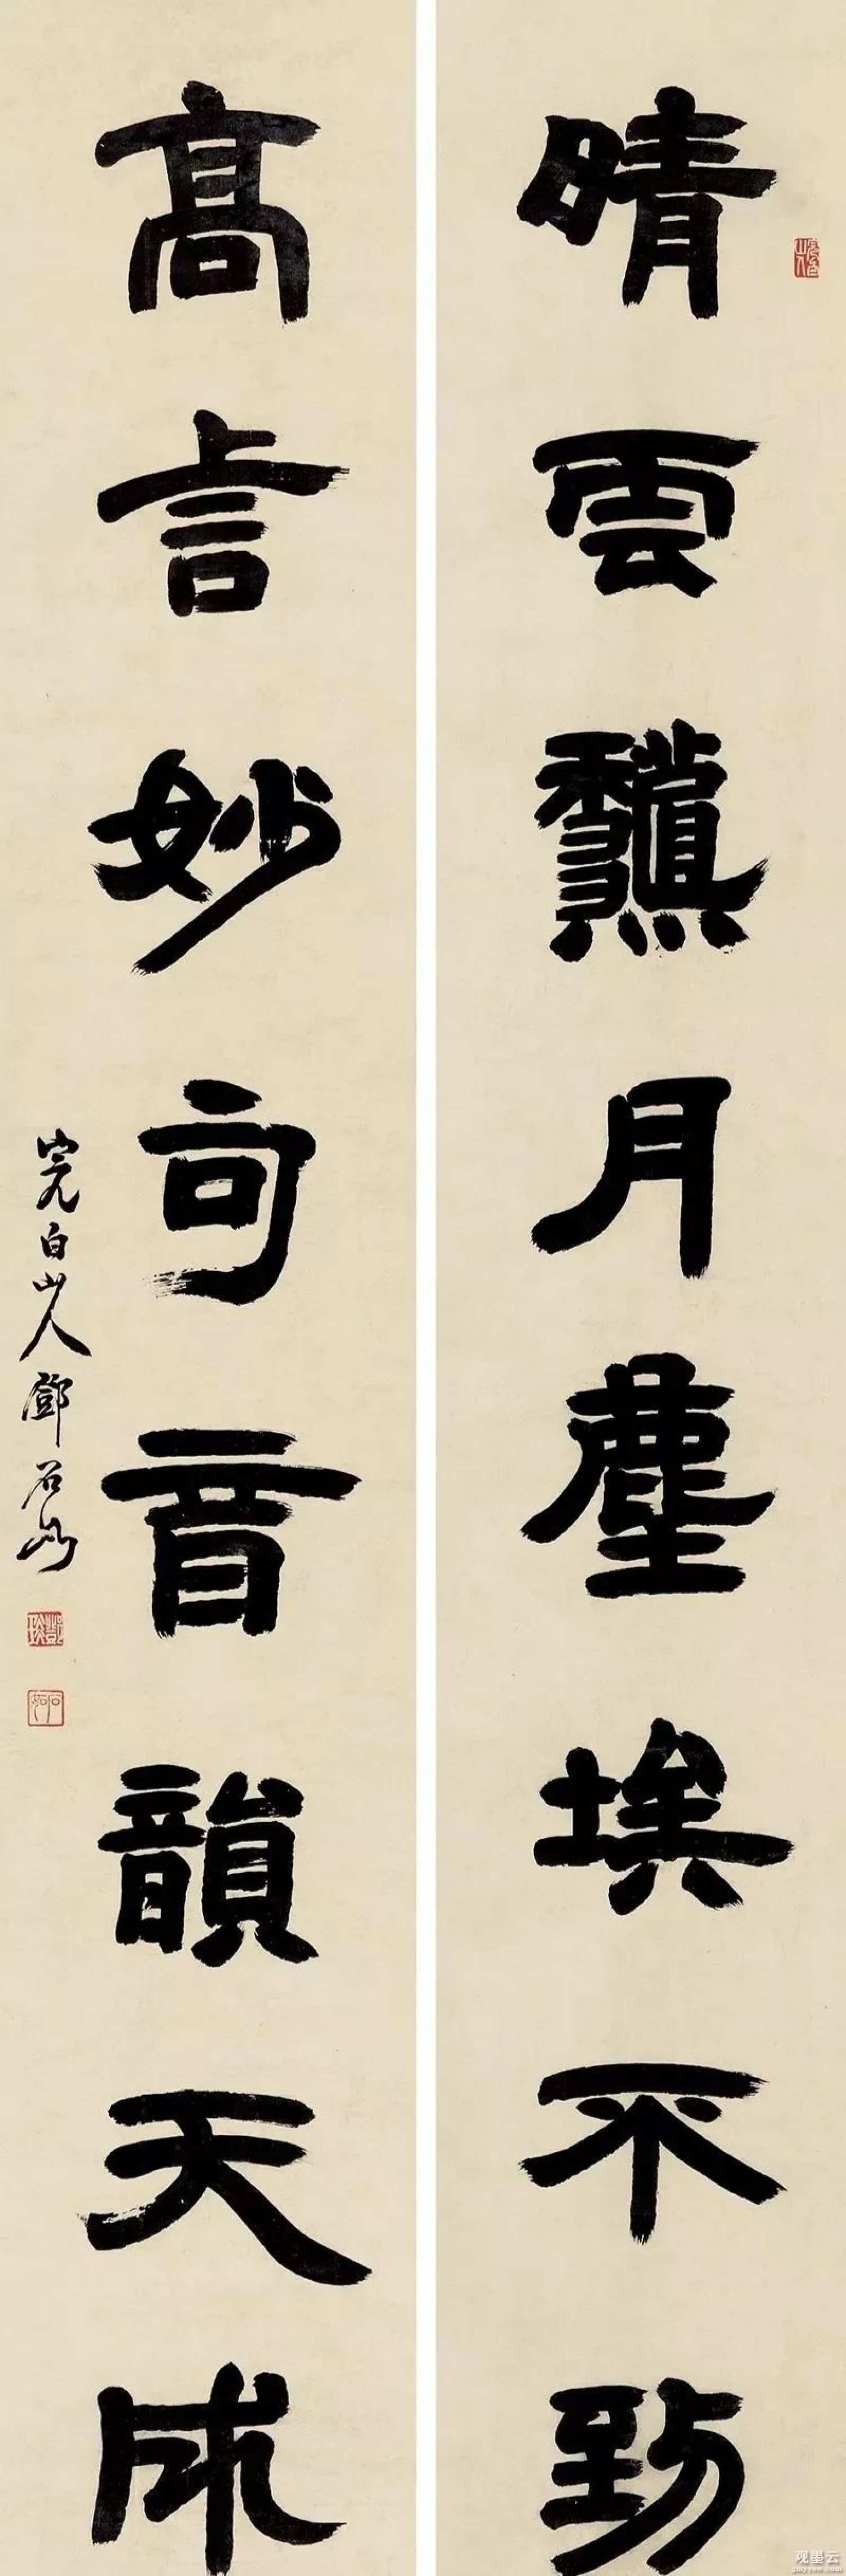 晴雲龝月塵埃不到
高言妙句音韻天成
完白山人鄧石如
石如
观墨云